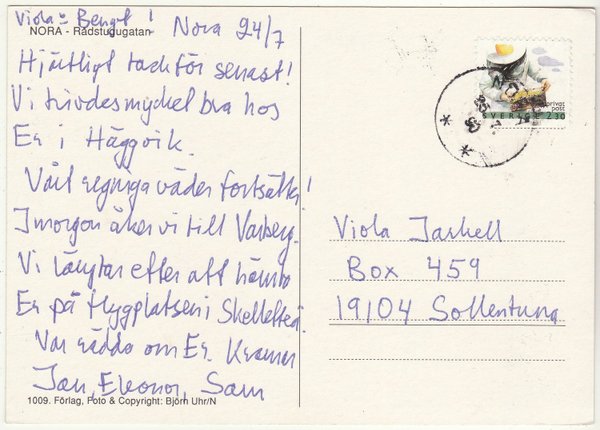 Viola o Bengt!
NORA - Rådstugugatan
Nora 24/7
Hjärtligt tack för senast!
Vi trivdes mycket bra hos
Er i Häggvik.
Vårt regniga väder fortsätter!
Imorgon åker vi till Varberg.
Vi längtar efter att hämta
Er på flygplatsen i Skellefteå.
Var rädda om Er. Kramar
Jan, Eleonor, Sam
1009. Förlag, Foto & Copyright: Björn Uhr/N
privat
post
SVERIGE 2.30
NORA
Viola Jarkell
Box 459
19104 Sollentuna